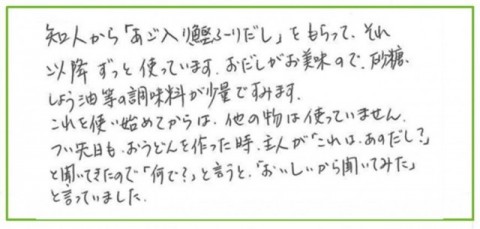 知人から「あご入り鰹ふりだし」をもらって、それ
以降ずっと使っています。おだしがお美味ので、砂糖、
しょう油等の調味料が少量ですみます。
これを使い始めてからは、他の物は使っていません。
つい先日も、おうどんを作った時、主人が「これは、あのだし？」
と聞いてきたので「何で？」と言うと、「おいしいから聞いてみた」
と言っていました。